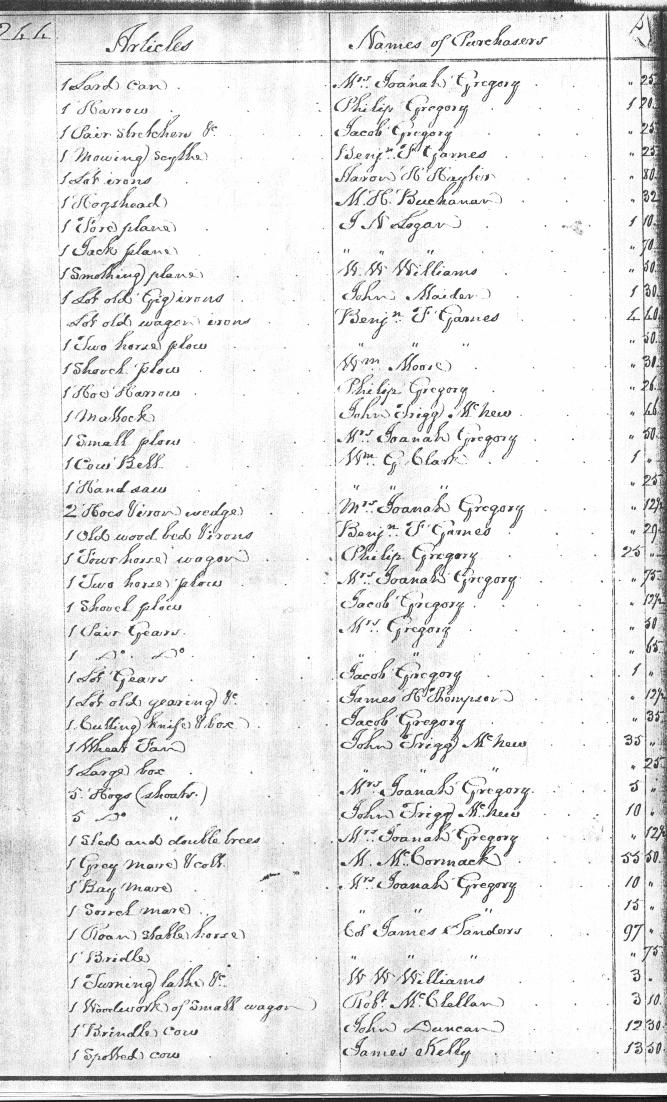 244 Articles Names of Purchasers
1 Lard can Mrs Joanah Gregory " 25
1 Harrow Philip Gregory 1 20
1 Pair Stretchers &c Jacob Gregory " 25
1 Mowing Scythe Benjn F Garnes " 25
1 Lot irons Aaron H " 80
1 Hogshead M. H. Buchanan " 32
1 Fore plane J N Logan 1 10
1 Jack plane " " " " 70
1 Smothing plane W. W Williams " 50
1 Lot old Gig irons John Maiden 1 30
Lot old wagon irons Benjn F Garnes 4 40
1 Two horse plow " " " " 50
1 Shovel plow Wm Moore " 30
1 Hoe Harrow Philip Gregory " 26
1 Mattock John Trigg McNew " 46
1 Small plow Mrs Joanah Gregory " 50
1 Cow Bell Wm G Clark 1 "
1 Hand saw " " " " 25
2 Hoes & iron wedge Mrs Joanah Gregory " 12½
1 Old wood bed & irons Benjn F Garnes " 29
1 Four horse wagon Philip Gregory 25 "
1 Two horse plow Mrs Joanah Gregory " 75
1 Shovel plow Jacob Gregory " 12½
1 Pair Gears Mrs Gregory " 50
1 Do Do " " 65
1 Lot Gears Jacob Gregory 1 "
1 Lot old gearing &c James H Thompson " 12½
1 Cutting knife & box Jacob Gregory " 35
1 Wheat Fan John Trigg McNew 35 "
1 Large box " " " " 25
5 Hogs (shoats) Mrs Joanah Gregory 5 "
5 Do " John Trigg McNew 10 "
1 Sled and double trees Mrs Joanah Gregory " 12½
1 Grey mare & colt M. McCormack 55 50
1 Bay mare Mrs Joanah Gregory 10 "
1 Sorrel mare " " " 15 "
1 Roan Stable horse Col James Sanders 97 "
1 Bridle " " " " 75
1 Turning lathe &c W W Williams 3 "
1 Woodwork of Small wagon Robt McClellan 3 10
1 Brindle cow John Duncan 12 30
1 Spotted cow James Kelly 13 50